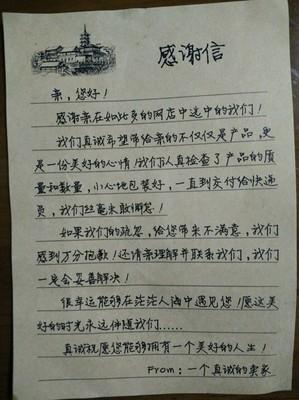 感谢信
亲，您好！
感谢亲在如此多的网店中选中的我们！
我们真诚希望带给亲的不仅仅是产品，更
是一份美好的心情！我们认真检查了产品的质
量和数量，小心地包装好，一直到交付给快递
员，我们丝毫未敢懈怠！
如果我们的疏忽，给您带来不满意，我们
感到万分抱歉！还请亲理解并联系我们，我们
一定会妥善解决！
很幸运能够在茫茫人海中遇见您！愿这美
好的时光永远伴随我们......
真诚祝愿您能够拥有一个美好的人生！
From：一个真诚的卖家